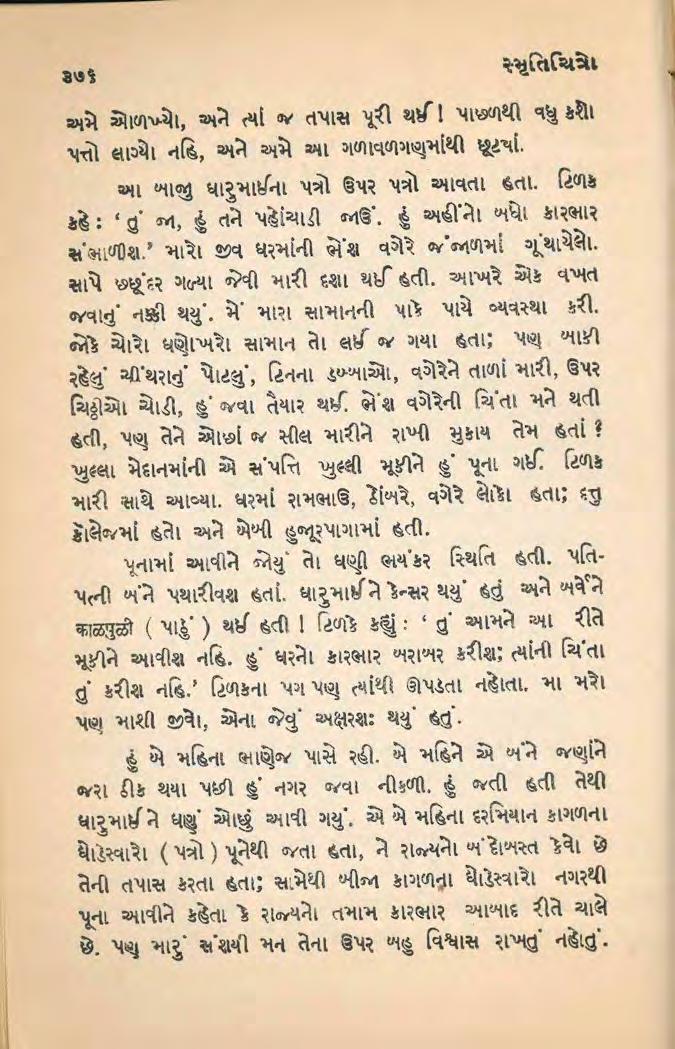 ૩૭૬
સ્મૃતિચિત્રો
અમે ઓળખ્યો, અને ત્યાં જ તપાસ પૂરી થઈ ! પાછળથી વધુ કશો
પત્તો લાગ્યો નહિ, અને અમે આ ગળાવળગણમાંથી છૂટયાં.
આ બાજુ ઘારુમાઈના પત્રો ઉપર પત્રો આવતા હતા. ટિળક
કહે : ‘ તું જા, હું તને પહોંચાડી જાઉં. હું અહીંનો બધો કારભાર
સંભાળીશ.’ મારો જીવ ઘરમાંની ભેંશ વગેરે જંજાળમાં ગૂંથાયેલો.
સાપે છછૂંદર ગળ્યા જેવી મારી દશા થઈ હતી. આખરે એક વખત
જવાનું નક્કી થયું. મેં મારા સામાનની પાકે પાયે વ્યવસ્થા કરી.
જોકે ચોરો ઘણોખરો સામાન તો લઈ જ ગયા હતા; પણ બાકી
રહેલું ચીંથરાનું પોટલું, ટિનના ડબ્બાઓ, વગેરેને તાળાં મારી, ઉપર
ચિઠ્ઠીઓ ચોડી, હું જવા તૈયાર થઈ. ભેંશ વગેરેની ચિંતા મને થતી
હતી, પણ તેને ઓછાં જ સીલ મારીને રાખી મુકાય તેમ હતાં ?
ખુલ્લા મેદાનમાંની એ સંપત્તિ ખુલ્લી મૂકીને હું પૂના ગઈ. ટિળક
મારી સાથે આવ્યા. ઘરમાં રામભાઉ, ઠોંબરે, વગેરે લોકો હતા; દત્તુ
કૉલેજમાં હતો અને બેબી હુજૂરપાગામાં હતી.
પૂનામાં આવીને જોયું તો ઘણી ભયંકર સ્થિતિ હતી. પતિ-
પત્ની બંને પથારીવશ હતાં. ઘારુમાઈને કેન્સર થયું હતું અને બર્વેને
काळपुळी ( પાઠું ) થઈ હતી ! ટિળકે કહ્યું : ‘ તું આમને આ રીતે
મૂકીને આવીશ નહિ. હું ઘરનો કારભાર બરાબર કરીશ; ત્યાંની ચિંતા
તું કરીશ નહિ.’ ટિળકના પગ પણ ત્યાંથી ઊપડતા નહોતા. મા મરો
પણ માશી જીવો, એના જેવું અક્ષરશઃ થયું હતું.
હું બે મહિના ભાણેજ પાસે રહી. બે મહિને એ બંને જણાંને
જરા ઠીક થયા પછી હું નગર જવા નીકળી. હું જતી હતી તેથી
ઘારુમાઈને ઘણું ઓછું આવી ગયું. એ બે મહિના દરમિયાન કાગળના
ઘોડેસ્વારો ( પત્રો ) પૂનેથી જતા હતા, ને રાજ્યનો બંદોબસ્ત કેવો છે
તેની તપાસ કરતા હતા; સામેથી બીજા કાગળના ઘોડેસ્વારો નગરથી
પૂના આવીને કહેતા કે રાજ્યનો તમામ કારભાર આબાદ રીતે ચાલે
છે. પણ મારું સંશયી મન તેના ઉપર બહુ વિશ્વાસ રાખતું નહોતું.